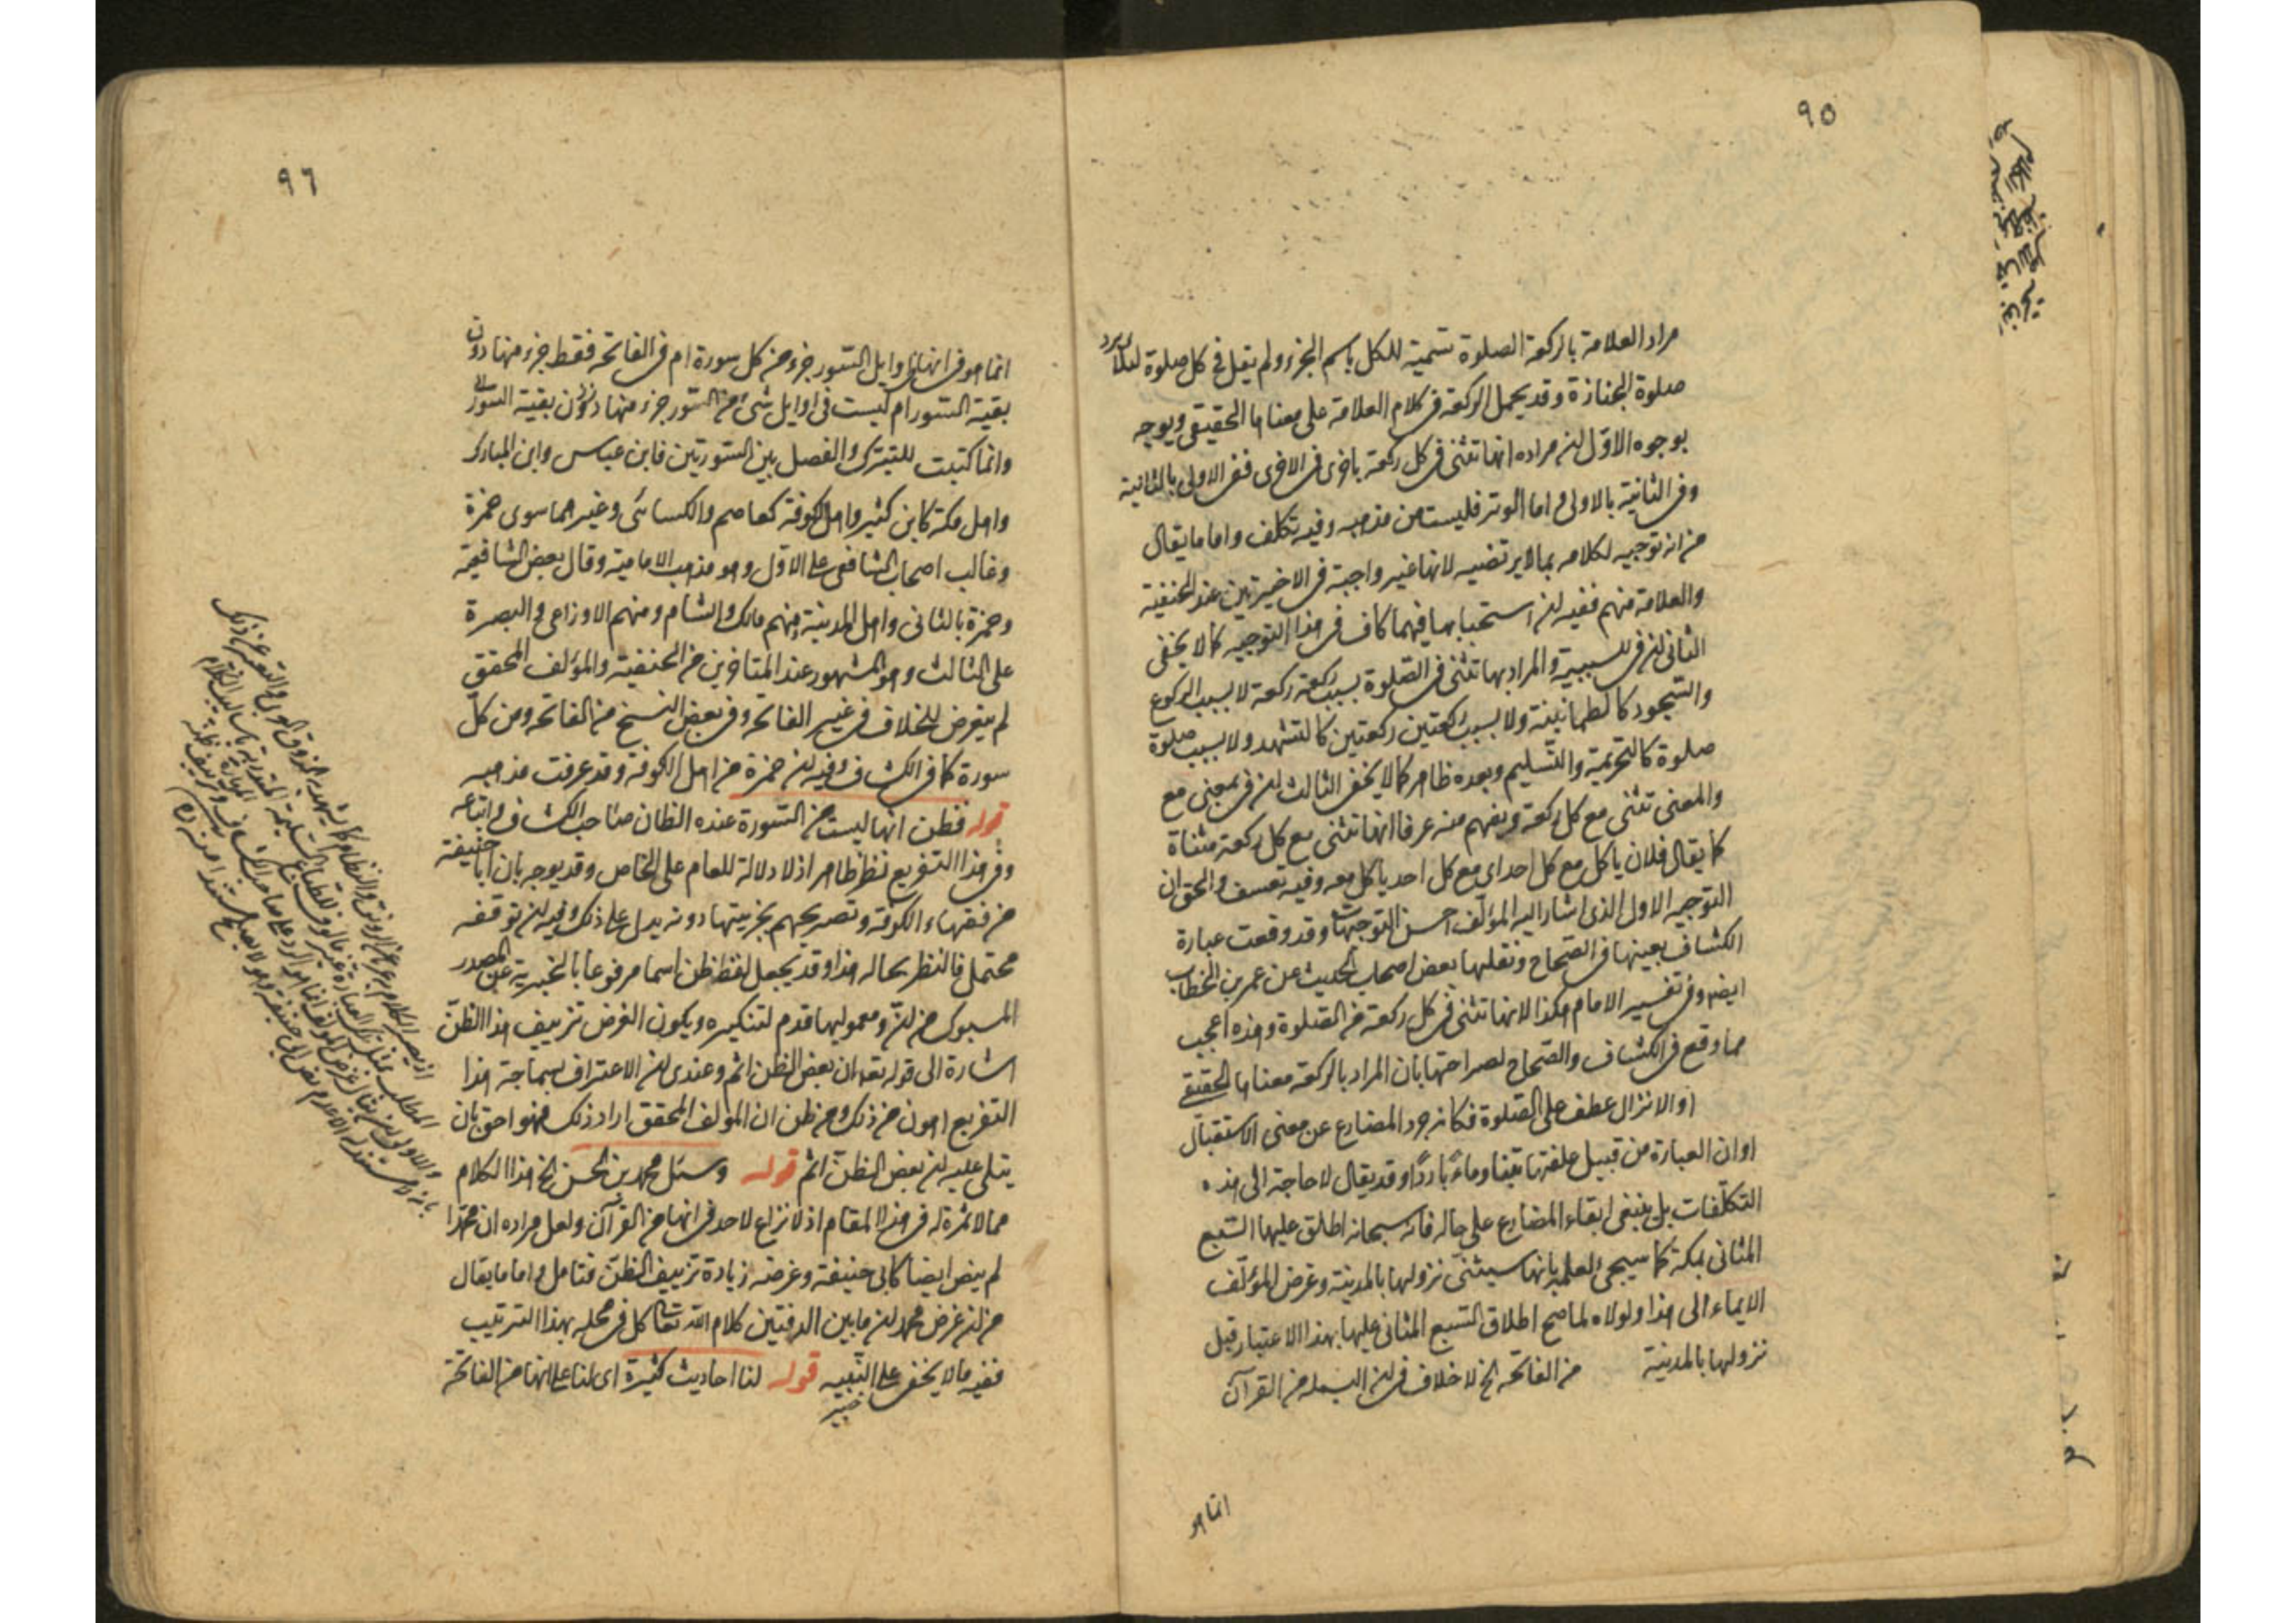 ٩٥
مراد العلامة بالركعة الصلوة تسمية للكل باسم الجزء ولم يقل في كل صلوة لئلا يرد
صلوة الجنازة وقد يحمل الركعة في كلام العلامة على معناها الحقيقي ويوجه
بوجوه الاول ان مراده انها تثنى في كل ركعة باخرى في الاخرى ففي الاولى بالثانية
وفي الثانية بالاولى واما الوتر فليست من مذهبه وفيه تكلف واما ما يقال
من انه توجيه لكلامه بما لا يرتضيه لانها غير واجبة في الاخيرتين عند الحنفية
والعلامة منهم ففيه ان استحبابها فيهما كاف في هذا التوجيه كما لا يخفى
الثاني ان في للسببية والمراد بها تثنى في الصلوة بسبب ركعة ركعة لا بسبب الركوع
والسجود كالطمانينة ولا بسبب ركعتين ركعتين كالتشهد ولا بسبب صلوة
صلوة كالتحريمة والتسليم وبعده ظاهر كما لا يخفى الثالث ان في بمعنى مع
والمعنى تثنى مع كل ركعة ويفهم منه عرفا انها تثنى مع كل ركعة مثناة
كما يقال فلان ياكل مع كل احد اى مع كل احد ياكل معه وفيه تعسف والحق ان
التوجيه الاول الذى اشار اليه المؤلف احسن التوجيهات وقد وقعت عبارة
الكشاف بعينها في الصحاح ونقلها بعض اصحاب الحديث عن عمر بن الخطاب
ايضا وفي تفسير الامام هكذا لانها تثنى في كل ركعة من الصلوة وهذه اعجب
مما وقع في الكشاف والصحاح لصراحتها بأن المراد بالركعة معناها الحقيقى
او الانزال عطف على الصلوة فكانه جرد المضارع عن معنى الاستقبال
او ان العبارة من قبيل علفتها تبنا وماءً باردًا وقد يقال لا حاجة الى هذه
التكلفات بل ينبغى ابقاء المضارع على حاله فانه سبحانه اطلق عليها السبع
المثانى بمكة كما سيجئ لعلمه بانها سيثنى نزولها بالمدينة وغرض المؤلف
الايماء الى هذا ولولاه لما صح اطلاق السبع المثانى عليها بهذا الاعتبار قبل
نزولها بالمدينة من الفاتحة الخ لا خلاف في ان البسملة من القرآن
انما هو
٩٦
انما هو في انها في اوايل السور جزء من كل سورة ام في الفاتحة فقط جزء منها دون
بقية السور ام ليست في اوايل شئ من السور جزء منها دون بقية السور
وانما كتبت للتبرك والفصل بين السورتين فابن عباس وابن المبارك
واهل مكة كابن كثير واهل الكوفة كعاصم والكسائى وغيرهما سوى حمزة
وغالب اصحاب الشافعى على الاول وهو مذهب الامامية وقال بعض الشافعية
وحمزة بالثانى واهل المدينة منهم مالك والشام ومنهم الاوزاعى والبصرة
على الثالث وهو المشهور عند المتاخرين من الحنفية والمؤلف المحقق
لم يتعرض للخلاف في غير الفاتحة وفي بعض النسخ من الفاتحة ومن كل
سورة كما في الكشاف وفيه ان حمزة من اهل الكوفة وقد عرفت مذهبه
قوله فظن انها ليست من السورة عنده الظان صاحب الكشاف واتباعه
وفي هذا التفريع نظر ظاهر اذ لا دلالة للعام على الخاص وقد يوجه بان ابا حنيفة
من فقهاء الكوفة وتصريحهم بجزيتها دونه يدل على ذلك وفيه ان توقفه
محتمل فالنظر بحاله هذا وقد يجعل لفظ ظن اسما مرفوعا بالخبرية عن المصدر
المسبوك من ان ومعموليها قدم لتنكيره ويكون الغرض تزييف هذا الظن
اشارة الى قوله تعالى ان بعض الظن اثم وعندى ان الاعتراف بسماجة هذا
التفريع اهون من ذلك ومن ظن ان المؤلف المحقق اراد ذلك فهو احق بان
يتلى عليه ان بعض الظن اثم قوله وسئل محمد بن الحسن الخ هذا الكلام
مما لا ثمرة له في هذا المقام اذ لا نزاع لاحد في انها من القرآن ولعل مراده ان محمدا
لم ينص ايضا كابى حنيفة وغرضه زيادة تزييف الظن فتامل واما ما يقال
من ان غرض محمد ان ما بين الدفتين كلام الله تعالى كل في محله بهذا الترتيب
ففيه ما لا يخفى على النبيه قوله لنا احاديث كثيرة اى لنا على انها من الفاتحة